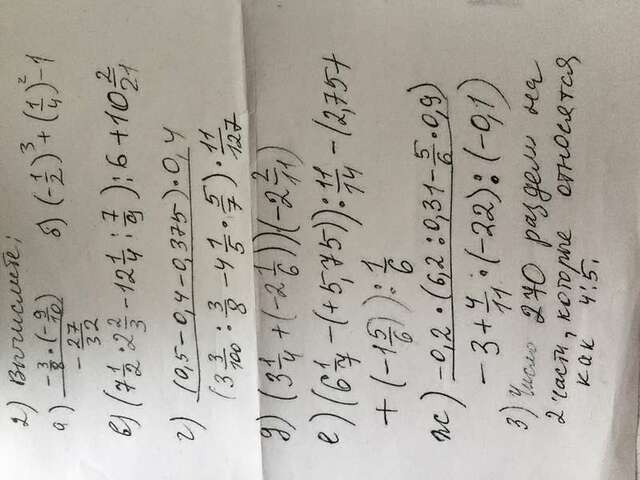 2) Вычислите:
а) (-3/8 · (-9/10)) / (-27/32)   б) (-1/2)³ + (1/4)² - 1
в) (7 1/2 · 2 2/3 - 12 1/4 : 7/9) : 6 + 10 2/21
г) ((0,5 - 0,4 - 0,375) · 0,4) / ((3 3/100 : 3/8 - 4 1/5 · 5/7) · 11/127)
д) (3 1/4 + (-2 1/6))(-2 2/11)
е) (6 1/7 - (+5,75)) : 11/14 - (2,75 +
+ (-1 5/6)) : 1/6
ж) (-0,2 · (6,2 : 0,31 - 5/6 · 0,9)) / (-3 + 4/11 · (-22) : (-0,1))
3) Число 270 раздели на
2 части, которые относятся
как 4:5.